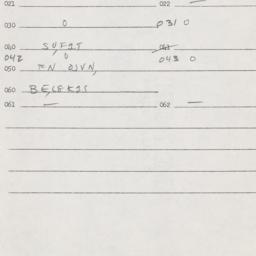 021 022 —
030 0 031 0
040 SUFIT 041
042 0 043 0
050 EN OJVN,
060 BELEKIS
061 — 062 —